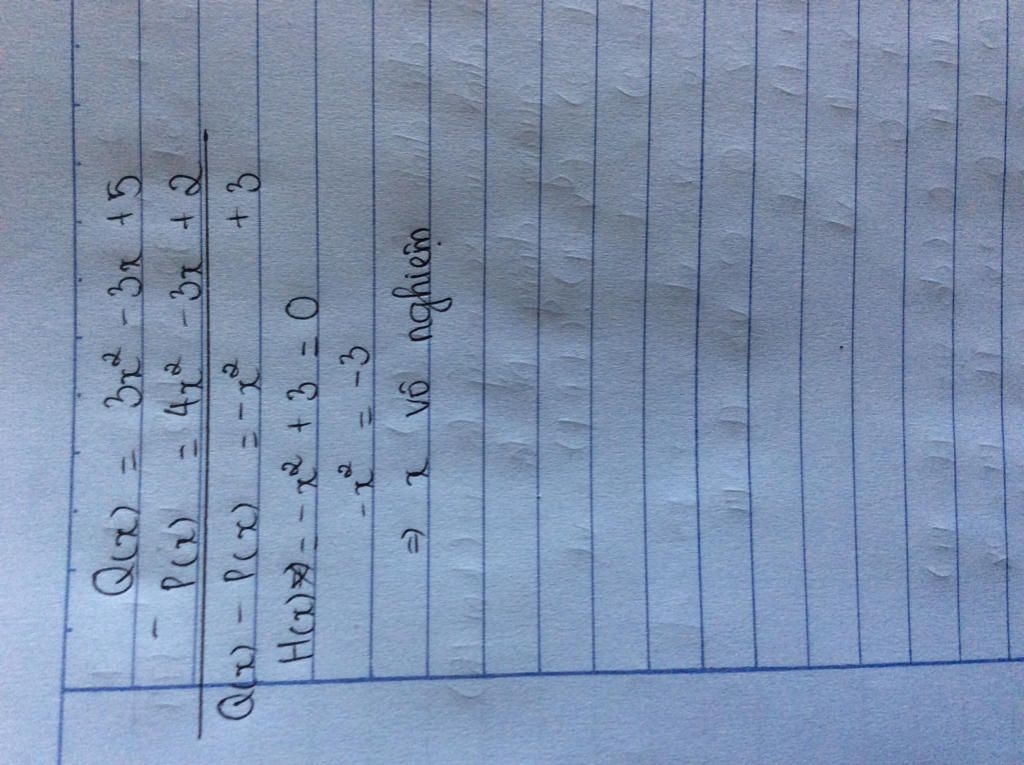 Q(x) = 3x² - 3x + 5
- P(x) = 4x² - 3x + 2
Q(x) - P(x) = -x² + 3
H(x) = -x² + 3 = 0
-x² = -3
⇒ x vô nghiệm